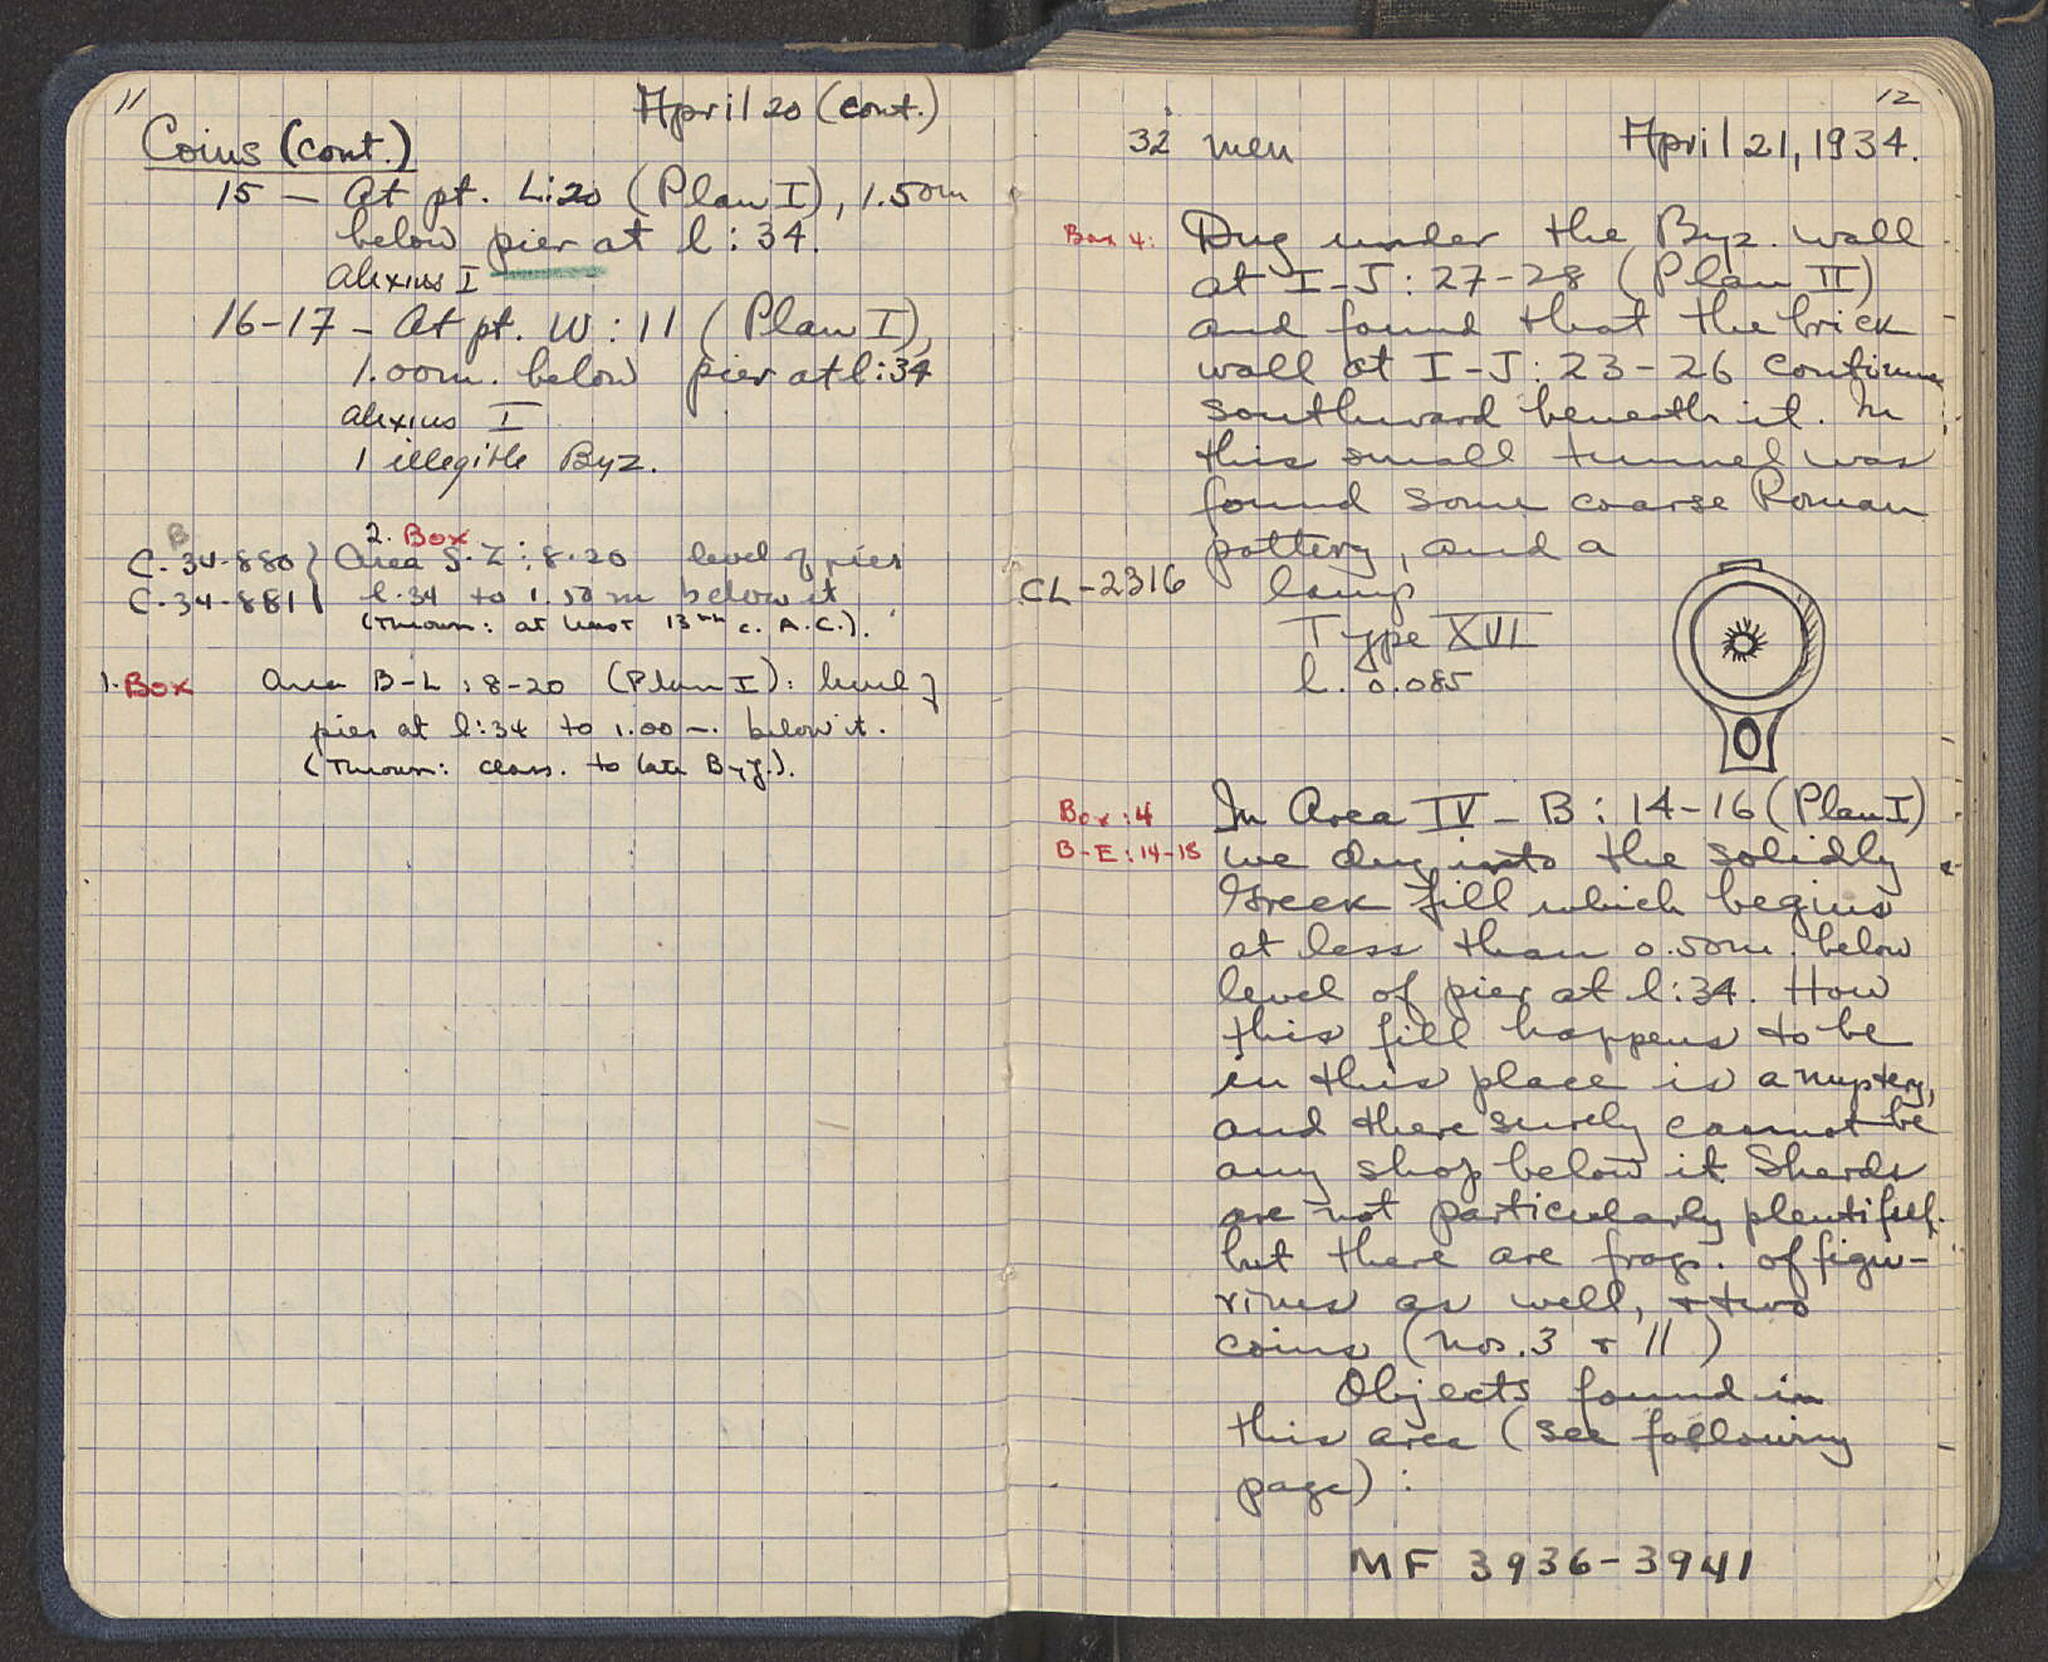 11
April 20 (cont.)
Coins (cont.)
15 – At pt. L:20 (Plan I), 1.50m
below pier at l:34.
Alexius I
16-17 – At pt. W:11 (Plan I),
1.00m. below pier at l:34
Alexius I
1 illegible Byz.
2. Box
B
C-34-880 } Area S-Z:8-20 level of pier
C-34-881 l:34 to 1.50m below it
(Thrown: at least 13th c. A.C.).
1. Box Area B-L:8-20 (Plan I): level of
pier at l:34 to 1.00 m. below it.
(Thrown: class. to late Byz.).
12
32 men April 21, 1934.
Box 4: Dug under the Byz. wall
at I-J:27-28 (Plan II)
and found that the brick
wall at I-J:23-26 continues
southward beneath it. In
this small tunnel was
found some coarse Roman
pottery, and a
CL-2316 lamp
Type XVI
l. 0.085
Box:4 In Area IV-B:14-16 (Plan I)
B-E:14-18 we dug into the solidly
Greek fill which begins
at less than 0.50m. below
level of pier at l:34. How
this fill happens to be
in this place is a mystery,
and there surely cannot be
any shop below it. Sherds
are not particularly plentiful,
but there are frags. of figu-
rines as well, + two
coins (nos. 3 + 11)
Objects found in
this area (see following
page):
MF 3936-3941